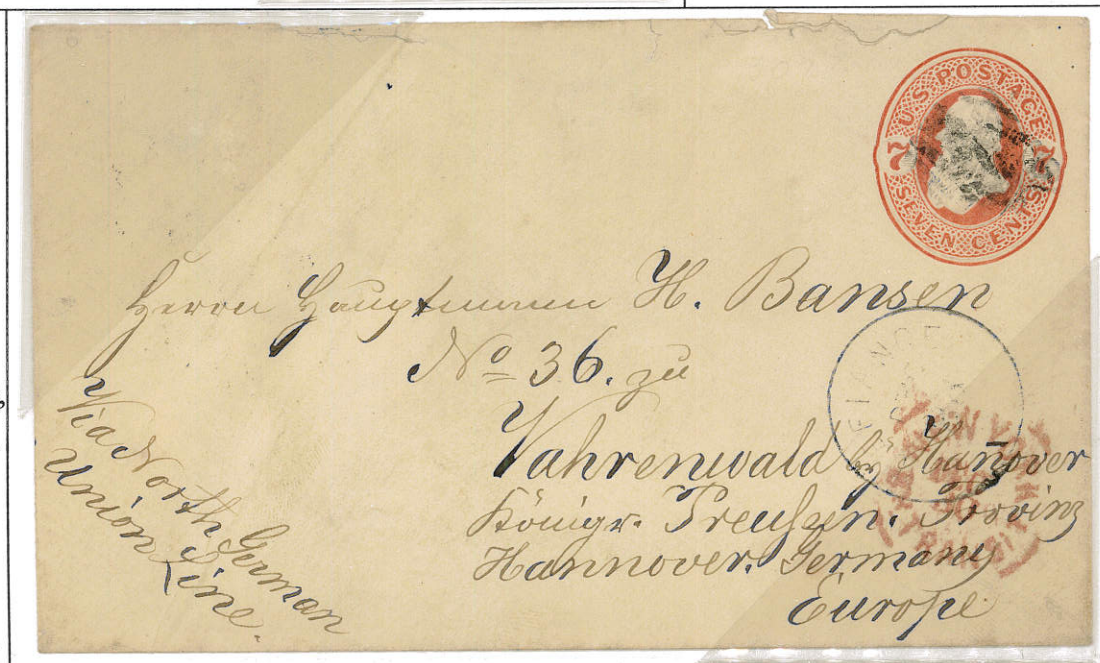 U.S. POSTAGE
7 7
SEVEN CENTS
Herrn Hauptmann H. Bansen
No 36. zu
Vahrenwald by Hañover
Königr. Preußen. Provinz
Hannover. Germany
Europe.
Via North German
Union Line.
NEW YORK